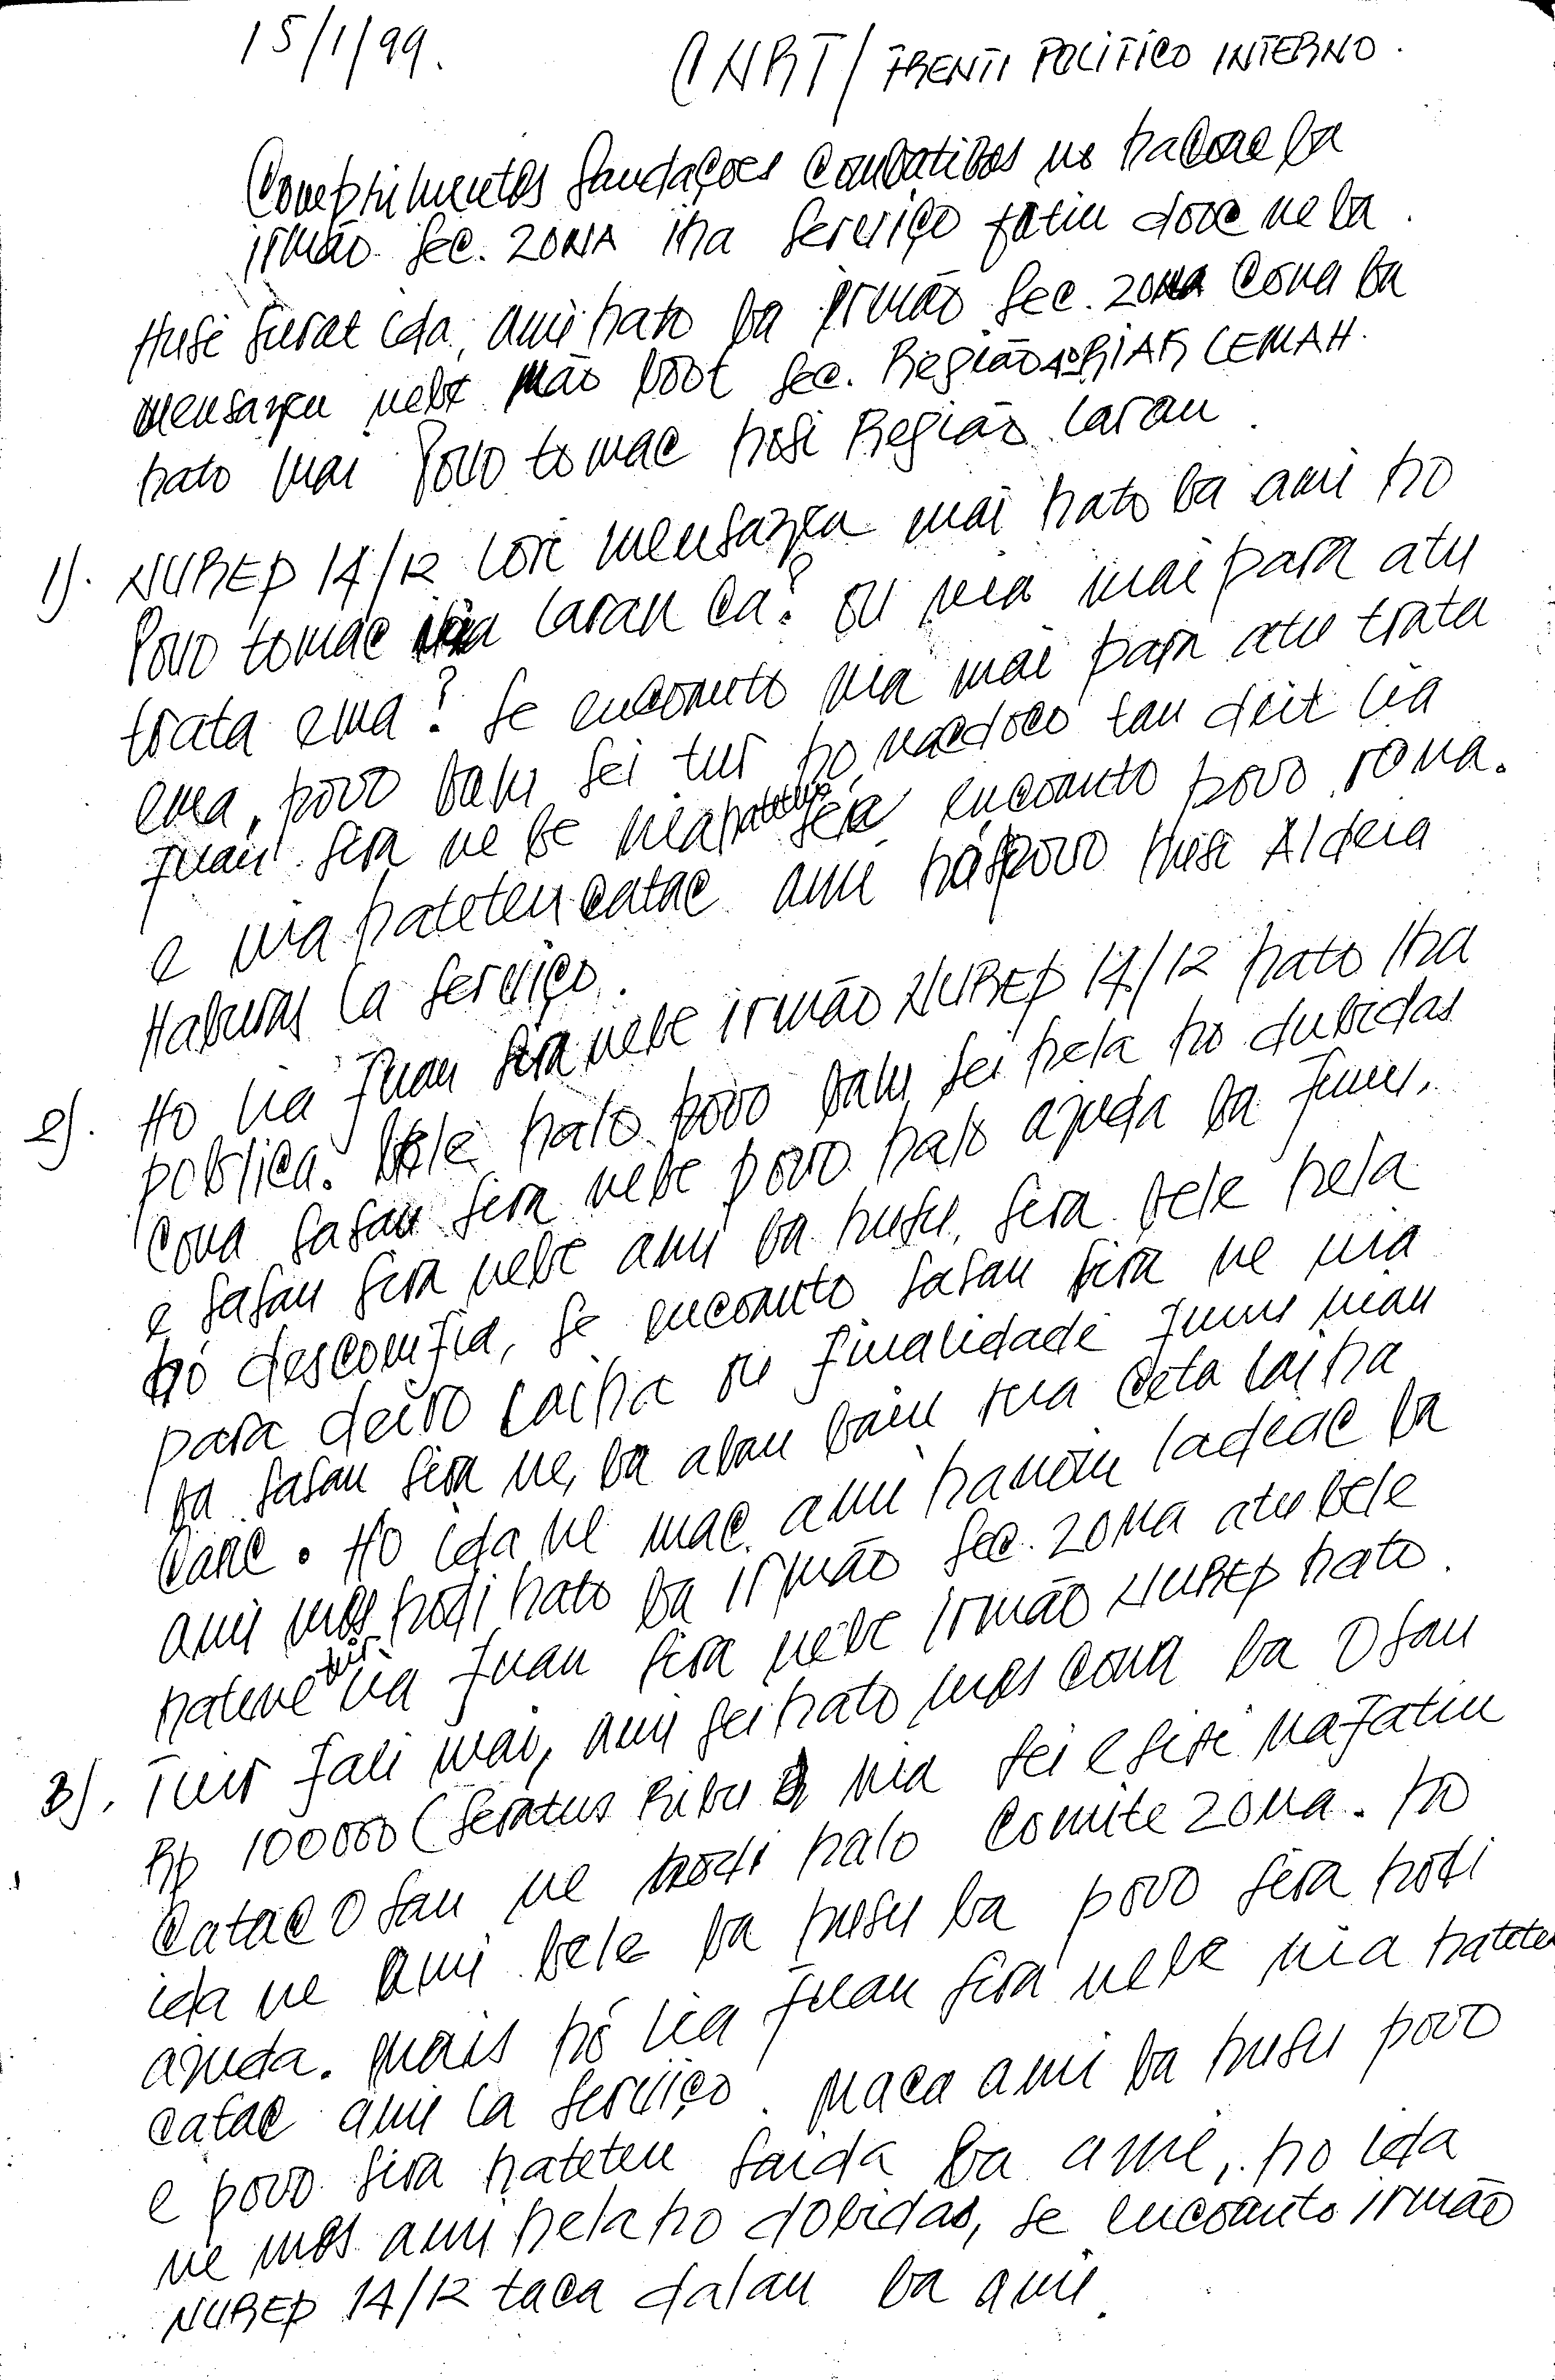 15/1/99.
CNRT/ FRENTI POLITICO INTERNO.
Comprimentos Saudações Combatibos no hacoac ba
irmão Sec. ZONA iha Serviço fatin dooc neba.
Husi surat ida, ami hato ba irmão Sec. zona Cona ba
mensazen nebe Mão boot Sec. Região BIAR LEMAH.
hato mai Povo tomac hosi Região laran.
1). NUREP 14/12 lori mensazen mai hato ba ami ho
Povo tomac iha laran ca? ou nia mai para atu
trata ema? Se encoanto nia mai para atu trata
ema, povo balu sei tur ho nacdoco tan deit lia
fuan sira ne be nia hateten sira encoanto povo rona.
e nia hateten catac ami povo husi Aldeia
Haburas la serviço.
2). Ho lia fuan sira nebe irmão NUREP 14/12 hato iha
publica. Bele halo povo balu sei hela ho dubidas
Cona sasan sira nebe povo halo ajuda ba funu,
e sasan sira nebe ami ba husu, sira bele hela
ho descomfia, se encoanto sasan sira ne nia
para deiro loiha ou finalidade funu nian
ba sasan sira ne, ba aban bain rua ceta loiha
Carc. Ho ida ne mac ami hanoin ladiac ba
ami mos hodi hato ba irmão Sec. zona atu bele
hatene tuir lia fuan sira nebe irmão NUREP hato.
3). Tuir fali mai, ami sei hato mos cona ba Osan
Rp 100000 (Seratus Ribu nia sei esisi nafatin
Catac Osan ne hodi halo Comite Zona. ho
ida ne ami bele ba husu ba povo sira hodi
ajuda. mais ho lia fuan sira nebe nia hateten
catac ami la serviço. maca ami ba husu povo
e povo sira hateten saida ba ami, ho ida
ne mos ami hela ho dobidas, se encoanto irmão
NUREP 14/12 taca dalan ba ami.